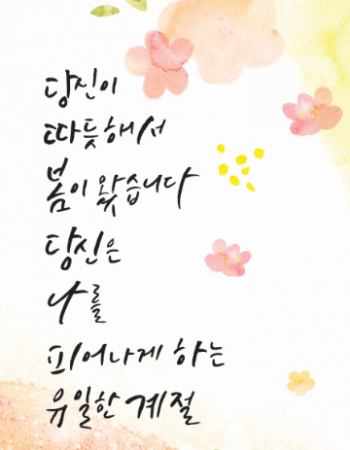 당신이
따듯해서
봄이 왔습니다
당신은
나를
피어나게 하는
유일한 계절